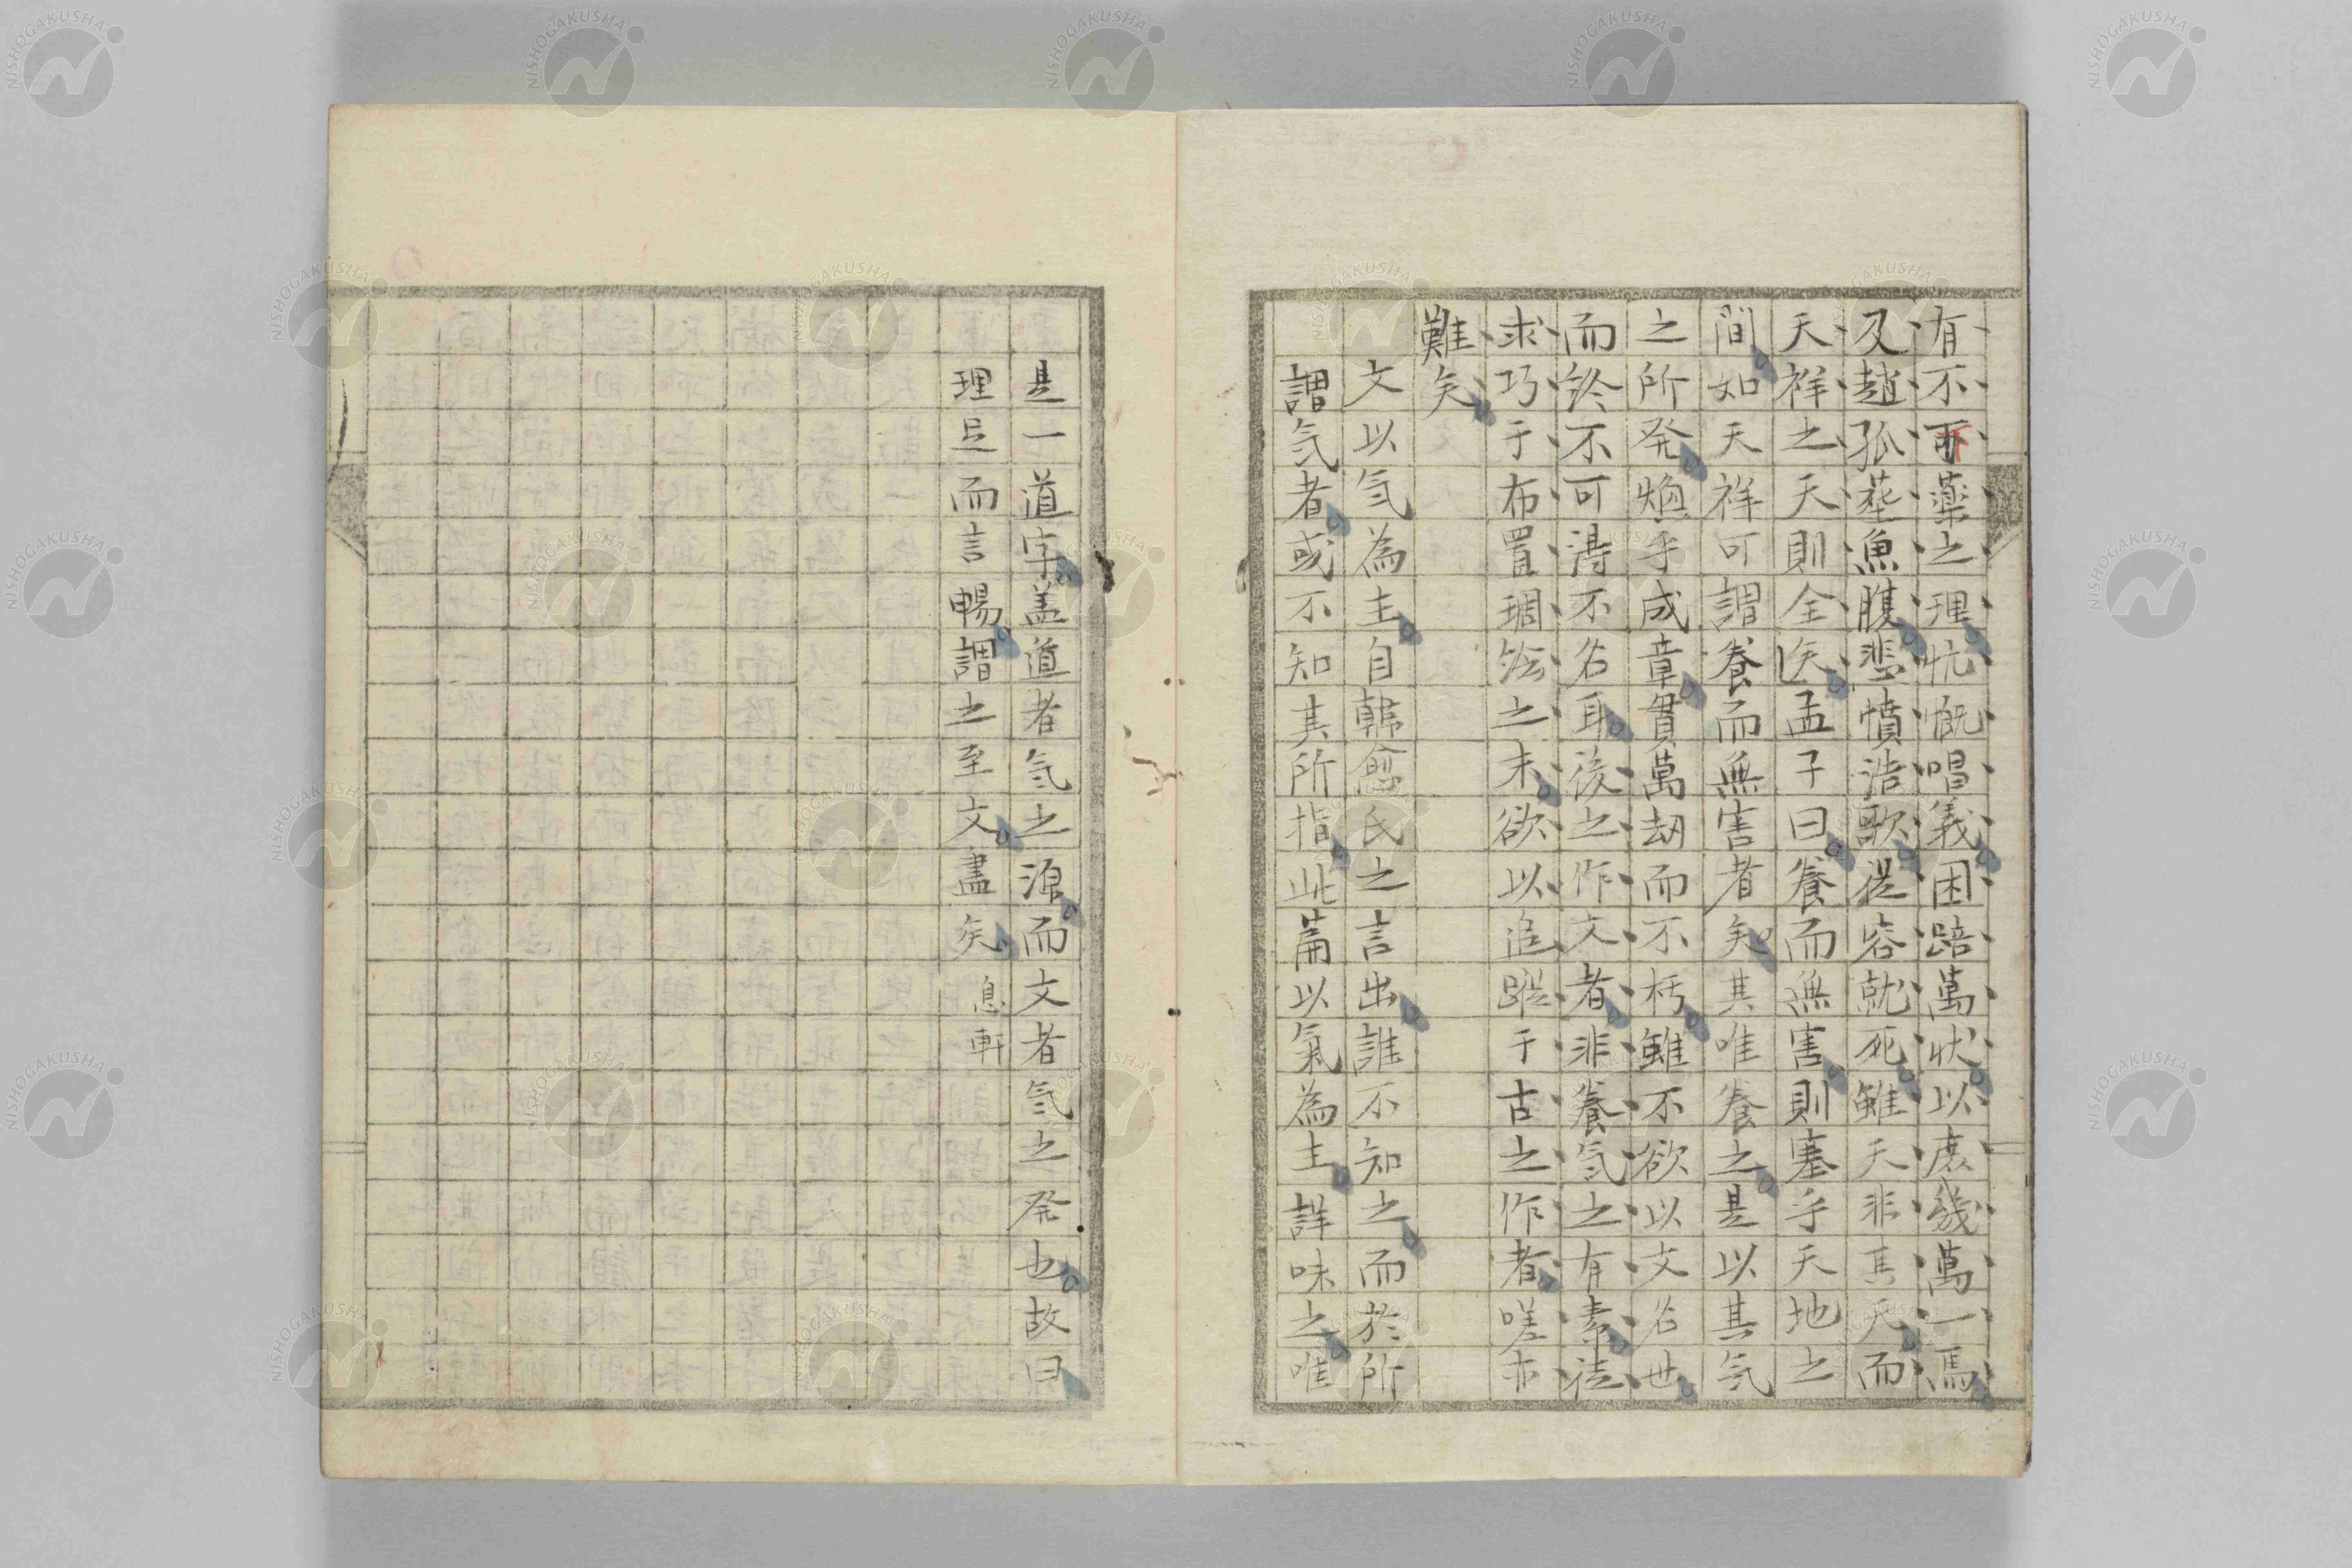 有不可藥之理忼慨唱義困踣萬状以庶幾萬一焉
及趙孤塟魚腹悲憤浩歌從容就死雖天非其天而
天祥之天則全矣孟子曰養而無害則塞乎天地之
間如天祥可謂養而無害者矣其唯養之是以其気
之所発煥乎成章貫萬劫而不朽雖不欲以文名世
而終不可得不名耳後之作文者非養気之有素徒
求巧于布置調法之末欲以追蹤于古之作者嗟亦
難矣
文以気為主自韓愈氏之言出誰不知之而於所
謂気者或不知其所指此篇以氣為主詳味之唯
是一道字盖道者気之源而文者気之発也故曰
理足而言暢謂之至文盡矣 息軒
NISHOGAKUSHA